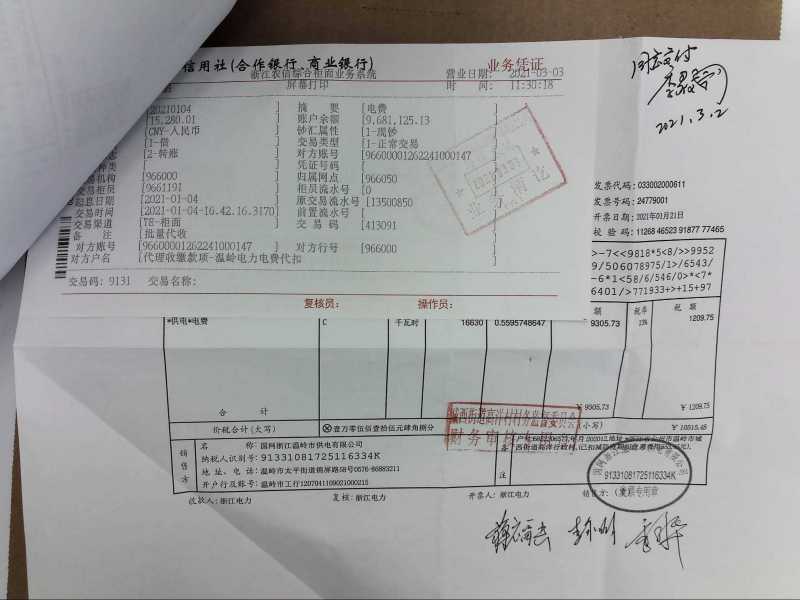 信用社(合作银行、商业银行)
业务凭证
浙江农信综合柜面业务系统
营业日期: 2021-03-03
屏幕打印
时 间: 11:30:18
[20210104 ] 摘 要 [电费 ]
[15,280.01 ] 账户余额 [9,681,125.13 ]
[CNY-人民币 ] 钞汇属性 [1-现钞 ]
[1-借 ] 交易类型 [1-正常交易 ]
[2-转账 ] 对方账号 [96600001262241000147 ]
凭证号码 [ ]
交易机构 [966000 ] 归属网点 [966050 ]
交易柜员 [9661191 ] 柜员流水号 [0 ]
起息日期 [2021-01-04 ] 原交易流水号 [113500850 ]
交易时间 [2021-01-04-16.42.16.3170] 前置流水号 [ ]
交易渠道 [TE-柜面 ] 交易码 [413091 ]
备 注 [批量代收 ]
对方账号 [96600001262241000147 ] 对方行号 [966000 ]
对方户名 [代理收缴款项-温岭电力电费代扣 ]
交易码: 9131 交易名称:
复核员: 操作员:
同意支付
2021.3.2
发票代码: 033002000611
发票号码: 24779001
开票日期: 2021年01月21日
校 验 码: 11268 46523 91877 77465
>-7<<9818*5<8/>>9952
9/506078975/1>/6543/
-6*1<58/6/546/0>*<7*
6401/>771933+>+15+97
额 税率 税 额
*供电*电费 C 千瓦时 16630 0.5595748647 9305.73 13% 1209.75
合 计 ¥9305.73 ¥1209.75
价税合计(大写) ⊗壹万零伍佰壹拾伍元肆角捌分 (小写) ¥10515.48
财务审核
销售方
名 称: 国网浙江温岭市供电有限公司
纳税人识别号: 91331081725116334K
地 址、电 话: 温岭市太平街道锦屏路58号0576-86883211
开户行及账号: 温岭市工行1207041109021000215
备注
91331081725116334K
发票专用章
收款人: 浙江电力 复核: 浙江电力 开票人: 浙江电力 销售方: (章)